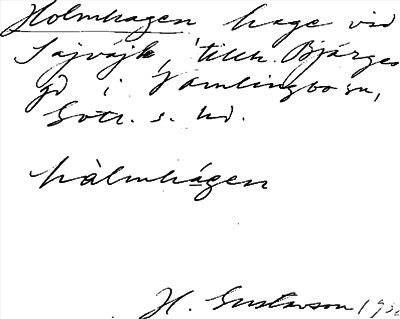 Holmhagen hage vid
Sajväjk, tillh. Bjärges
gd i Vamlingbo sn,
Gotl. s. hd.
hàlmhá̱gen
H. Gustavson 193